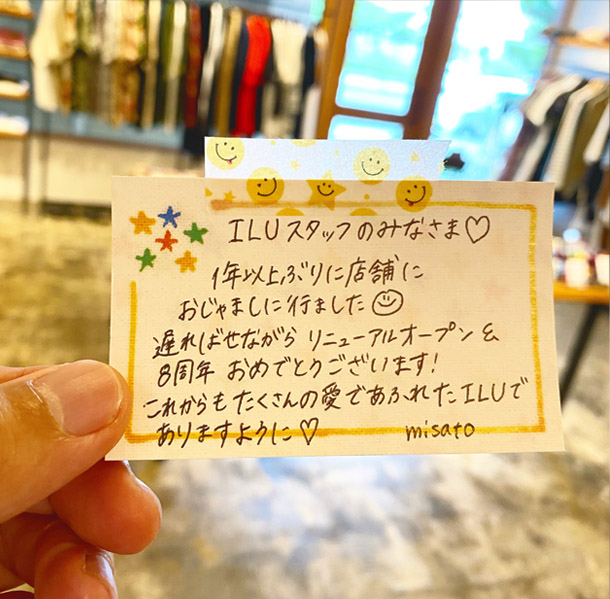 ILUスタッフのみなさま♡
1年以上ぶりに店舗に
おじゃましに行ました☺
遅ればせながら リニューアルオープン &
8周年 おめでとうございます!
これからもたくさんの愛であふれたILUで
ありますように♡ misato